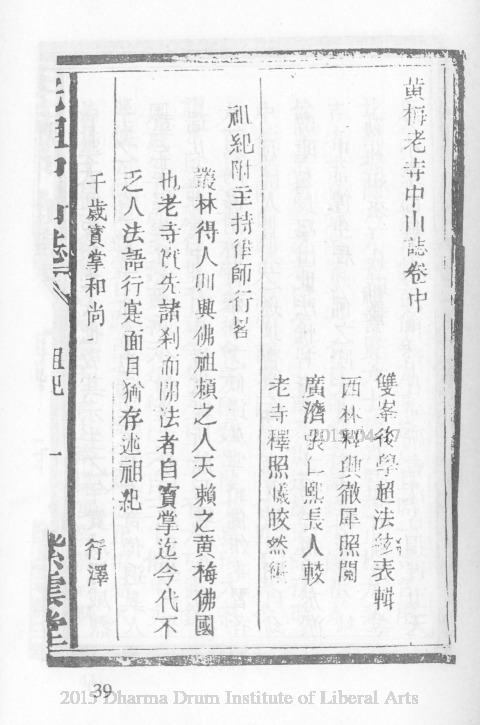 黃梅老寺中山誌卷中
雙峯後學超法 表輯
西林 徹犀照閱
廣濟 仁熙長人較
老寺釋照 皎然
祖紀附主持律師行畧
叢林得人則興佛祖賴之人天賴之黃梅佛國
也老寺實先諸刹而開法者自寶掌迄今代不
乏人法語行寔面目猶存述祖紀
千歲寶掌和尚 行澤
祖紀
一
紫雲堂
39
2015 Dharma Drum Institute of Liberal Arts